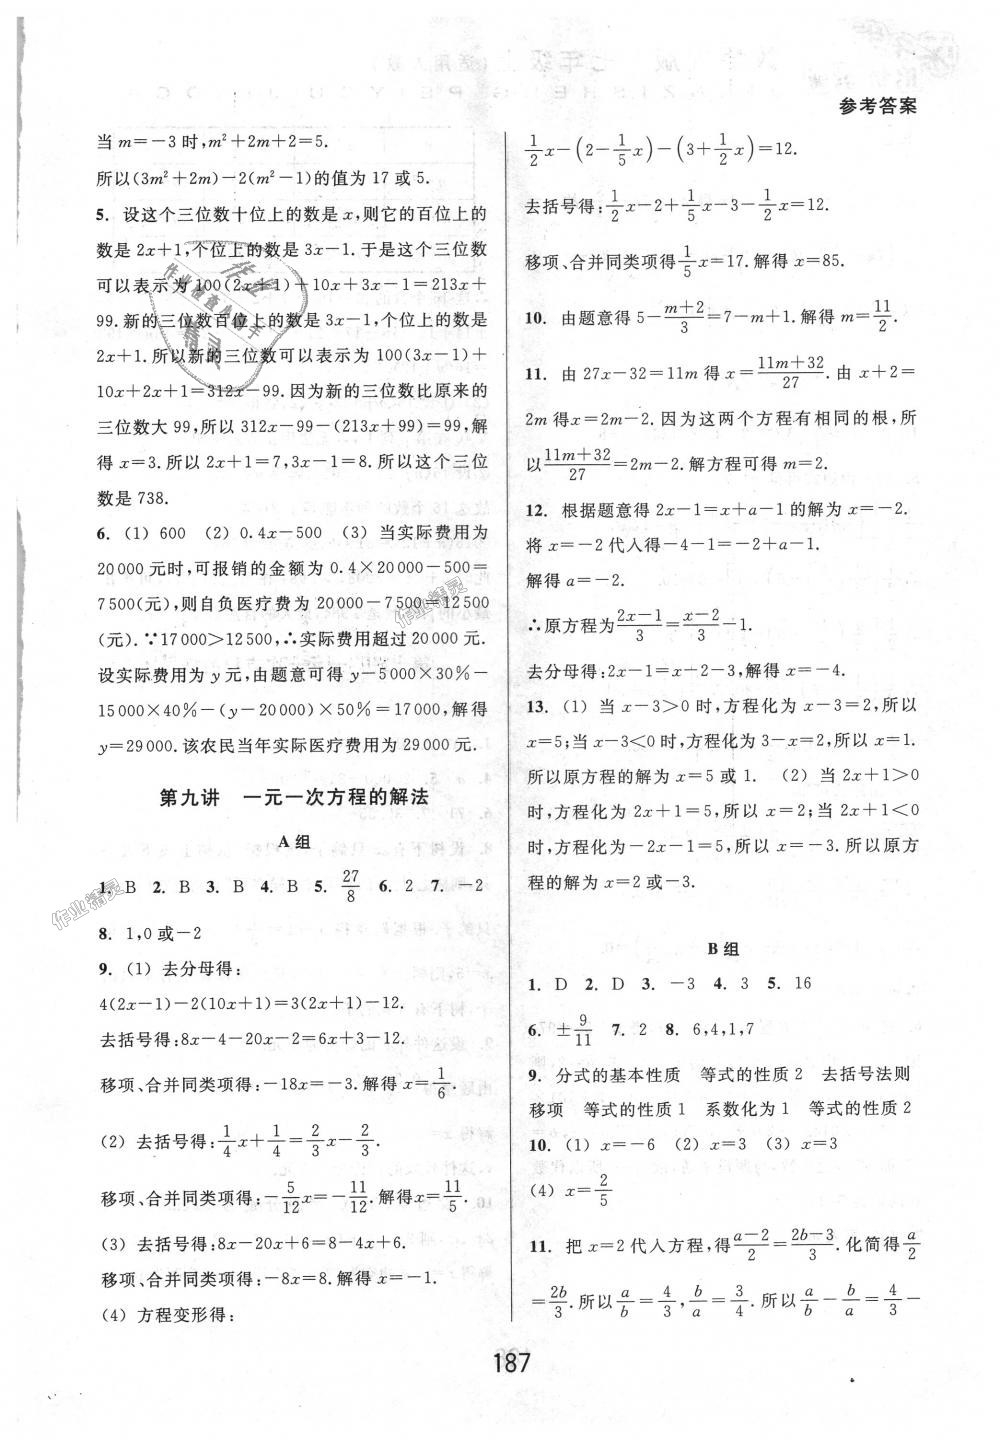 参考答案
当 m=-3 时,m²+2m+2=5.
所以(3m²+2m)-2(m²-1)的值为 17 或 5.
5. 设这个三位数十位上的数是 x,则它的百位上的
数是 2x+1,个位上的数是 3x-1. 于是这个三位数
可以表示为 100(2x+1)+10x+3x-1=213x+
99. 新的三位数百位上的数是 3x-1,个位上的数是
2x+1. 所以新的三位数可以表示为 100(3x-1)+
10x+2x+1=312x-99. 因为新的三位数比原来的
三位数大 99,所以 312x-99-(213x+99)=99,解
得 x=3. 所以 2x+1=7,3x-1=8. 所以这个三位
数是 738.
6. (1) 600 (2) 0.4x-500 (3) 当实际费用为
20000 元时,可报销的金额为 0.4×20000-500=
7500(元),则自负医疗费为 20000-7500=12500
(元). ∵17000>12500,∴实际费用超过 20000 元.
设实际费用为 y 元,由题意可得 y-5000×30%-
15000×40%-(y-20000)×50%=17000,解得
y=29000. 该农民当年实际医疗费用为 29000 元.
第九讲 一元一次方程的解法
A 组
1. B 2. B 3. B 4. B 5. 27/8 6. 2 7. -2
8. 1,0 或-2
9. (1) 去分母得:
4(2x-1)-2(10x+1)=3(2x+1)-12.
去括号得:8x-4-20x-2=6x+3-12.
移项、合并同类项得:-18x=-3. 解得 x=1/6.
(2) 去括号得:1/4x+1/4=2/3x-2/3.
移项、合并同类项得:-5/12x=-11/12. 解得x=11/5.
(3) 去括号得:8x-20x+6=8-4x+6.
移项、合并同类项得:-8x=8. 解得 x=-1.
(4) 方程变形得:
1/2x-(2-1/5x)-(3+1/2x)=12.
去括号得:1/2x-2+1/5x-3-1/2x=12.
移项、合并同类项得1/5x=17. 解得 x=85.
10. 由题意得 5-(m+2)/3=7-m+1. 解得 m=11/2.
11. 由 27x-32=11m 得 x=(11m+32)/27. 由 x+2=
2m 得x=2m-2. 因为这两个方程有相同的根,所
以(11m+32)/27=2m-2. 解方程可得 m=2.
12. 根据题意得 2x-1=x+a-1的解为 x=-2.
将 x=-2 代入得-4-1=-2+a-1.
解得 a=-2.
∴原方程为(2x-1)/3=(x-2)/3-1.
去分母得:2x-1=x-2-3,解得 x=-4.
13. (1) 当 x-3>0 时,方程化为 x-3=2,所以
x=5;当 x-3<0 时,方程化为 3-x=2,所以 x=1.
所以原方程的解为 x=5 或 1. (2) 当 2x+1>0
时,方程化为 2x+1=5,所以 x=2;当 2x+1<0
时,方程化为-2x-1=5,所以 x=-3. 所以原方
程的解为 x=2 或-3.
B 组
1. D 2. D 3. -3 4. 3 5. 16
6. ±9/11 7. 2 8. 6,4,1,7
9. 分式的基本性质 等式的性质 2 去括号法则
移项 等式的性质 1 系数化为 1 等式的性质 2
10. (1) x=-6 (2) x=3 (3) x=3
(4) x=2/5
11. 把 x=2 代入方程,得(a-2)/2=(2b-3)/3. 化简得a/2
=2b/3. 所以a/b=4/3,b/a=3/4. 所以a/b-b/a=4/3-
187
作业精灵
作业精灵
作业
作业检查小帮手
精灵